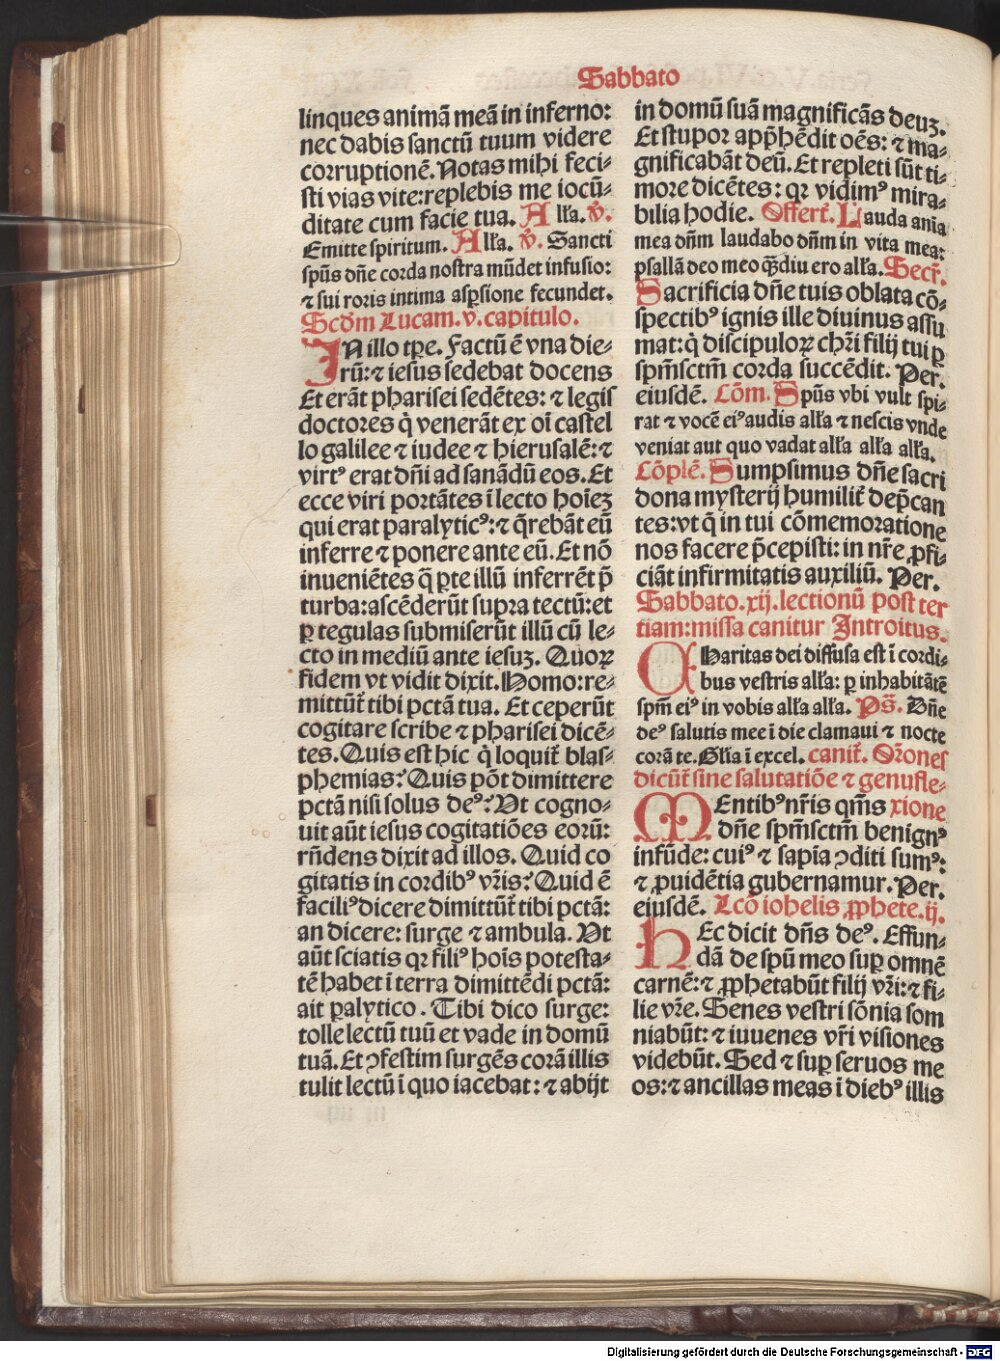 Sabbato
linques animā meā in inferno:
nec dabis sanctū tuum videre
corruptionē. Notas mihi feci-
sti vias vite: replebis me iocū-
ditate cum facie tua. Alľa. ꝟ.
Emitte spiritum. Alľa. ꝟ. Sancti
spūs dn̄e corda nostra mūdet infusio:
⁊ sui roris intima aspersione fecundet.
Scd̄m Lucam. v. capitulo.
IN illo tꝑe. Factū ē vna die-
rū: ⁊ iesus sedebat docens
Et erāt pharisei sedētes: ⁊ legis
doctores q̇ venerāt ex oī castel
lo galilee ⁊ iudee ⁊ hierusalē: ⁊
virtꝰ erat dn̄i ad sanādū eos. Et
ecce viri portātes ī lecto hoīeꝫ
qui erat paralyticꝰ: ⁊ q̄rebāt eū
inferre ⁊ ponere ante eū. Et nō
inueniētes q̄ ꝑte illū inferrēt p̄
turba: ascēderūt supra tectū: et
ꝑ tegulas submiserūt illū cū le-
cto in mediū ante iesuꝫ. Quoꝝ
fidem vt vidit dixit. Homo: re-
mittūt̄ tibi pctā tua. Et ceperūt
cogitare scribe ⁊ pharisei dicē-
tes. Quis est hic q̇ loquit̄ blas-
phemias? Quis pōt dimittere
pctā nisi solus deꝰ? Vt cogno-
uit aūt iesus cogitatiōes eorū:
rn̄dens dixit ad illos. Quid co
gitatis in cordibꝰ vr̄is? Quid ē
faciliꝰ dicere dimittūt̄ tibi pctā:
an dicere: surge ⁊ ambula. Vt
aūt sciatis qꝛ filiꝰ hoīs potesta-
tē habet ī terra dimittēdi pctā:
ait ꝑalytico. Tibi dico surge:
tolle lectū tuū et vade in domū
tuā. Et ꝯfestim surgēs corā illis
tulit lectū ī quo iacebat: ⁊ abijt
in domū suā magnificās deuꝫ.
Et stupor app̄hēdit oēs: ⁊ ma-
gnificabāt deū. Et repleti sūt ti-
more dicētes: qꝛ vidimꝰ mira-
bilia hodie. Offert̄. Lauda aīa
mea dn̄m laudabo dn̄m in vita mea:
psallā deo meo q̄diu ero alľa. Secr̄.
Sacrificia dn̄e tuis oblata cō-
spectibꝰ ignis ille diuinus assu
mat: q̇ discipuloꝝ chr̄i filij tui ꝑ
spm̄sctm̄ corda succēdit. Per.
eiusdē. Cōm. Spūs vbi vult spi-
rat ⁊ vocē eiꝰ audis alľa ⁊ nescis vnde
veniat aut quo vadat alľa alľa alľa.
Cōplē. Sumpsimus dn̄e sacri
dona mysterij humilit̄ dep̄can
tes: vt q̄ in tui cōmemoratione
nos facere p̄cepisti: in nr̄e ꝓfi-
ciāt infirmitatis auxiliū. Per.
Sabbato. xij. lectionū post ter
tiam: missa canitur Introitus.
CHaritas dei diffusa est ī cordi-
bus vestris alľa: ꝑ inhabitātē
spm̄ eiꝰ in vobis alľa alľa. Ps̄. Dn̄e
deꝰ salutis mee ī die clamaui ⁊ nocte
corā te. Glīa ī excel. canit̄. Or̄ones
dicūt̄ sine salutatiōe ⁊ genufle-
MEntibꝰ nr̄is qm̄s xione
dn̄e spm̄sctm̄ benignꝰ
infūde: cuiꝰ ⁊ sapīa ꝯditi sumꝰ:
⁊ ꝓuidētia gubernamur. Per.
eiusdē. Lcō iohelis ꝓphete. ij.
HEc dicit dn̄s deꝰ. Effun-
dā de spū meo suꝑ omnē
carnē: ⁊ ꝓphetabūt filij vr̄i: ⁊ fi-
lie vr̄e. Senes vestri sōnia som
niabūt: ⁊ iuuenes vr̄i visiones
videbūt. Sed ⁊ suꝑ seruos me
os: ⁊ ancillas meas ī diebꝰ illis
Digitalisierung gefördert durch die Deutsche Forschungsgemeinschaft - DFG